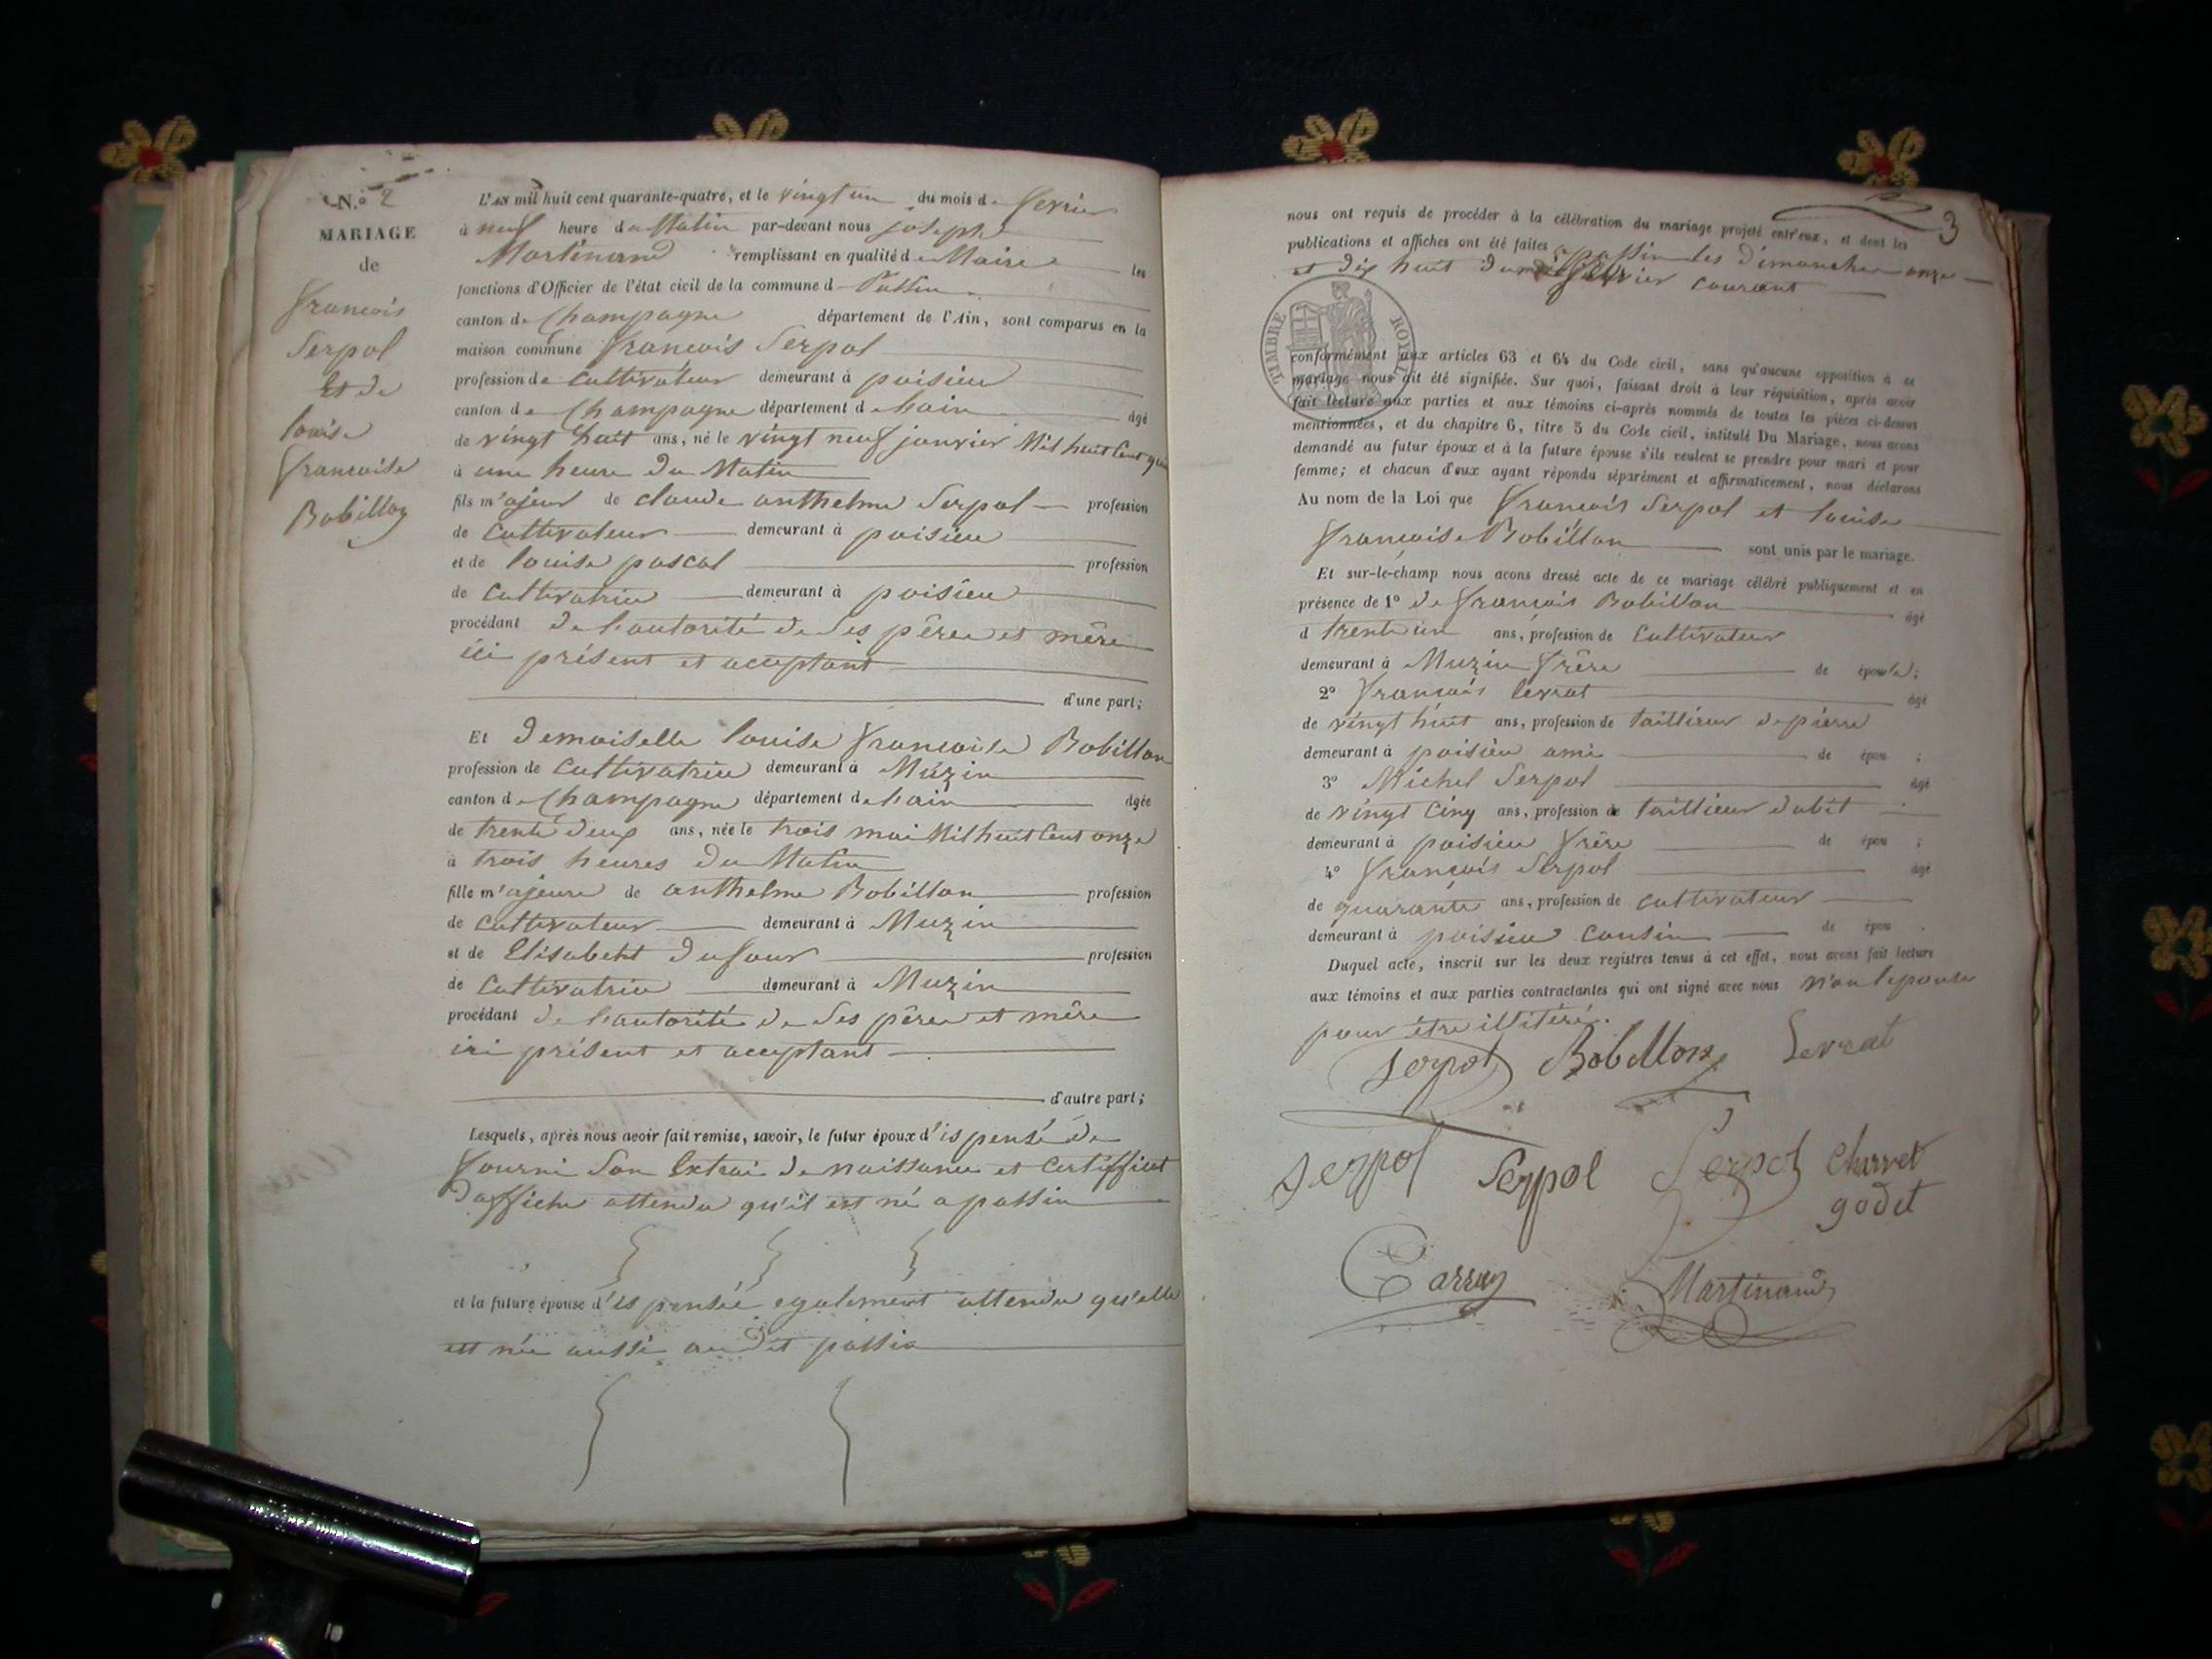 N.° 2
MARIAGE
de
françois
Serpol
Et de
louise
françoise
Bobillon
L'AN mil huit cent quarante-quatre, et le vingt un du mois de fevrier
à neuf heure du Matin par-devant nous joseph
Martinand remplissant en qualité de Maire les
fonctions d'Officier de l'état civil de la commune d Passin
canton de Champagne département de l'Ain, sont comparus en la
maison commune françois Serpol
profession de cultivateur demeurant à poisieu
canton de Champagne département de lain âgé
de vingt huit ans, né le vingt neuf janvier Mil huit Cent
à une heure du Matin
fils majeur de claude anthelme Serpol profession
de Cultivateur demeurant à poisieu
et de louise pascal profession
de Cultivatrice demeurant à poisieu
procédant de l'autorité de Ses père et mère
ici présent et acceptant
d'une part;
Et demoiselle louise françoise Bobillon
profession de Cultivatrice demeurant à Muzin
canton de Champagne département de lain âgée
de trente deux ans, née le trois mai Mil huit Cent onze
à trois heures du Matin
fille majeure de anthelme Bobillon profession
de Cultivateur demeurant à Muzin
et de Elisabeht dufour profession
de Cultivatrice demeurant à Muzin
procédant de l'autorité de Ses père et mère
ici présent et acceptant
d'autre part;
Lesquels, après nous avoir fait remise, savoir, le futur époux d'is pensé de
fournir Son Extrai de naissance et Certifficat
d'affiche attendu qu'il est né a passin
et la future épouse d'is pensée egalement attendu qu'elle
est née aussi au dit passin
3
nous ont requis de procéder à la célébration du mariage projeté entr'eux, et dont les
publications et affiches ont été faites a passin les dimanches onze
et dix huit du fevrier courant
TIMBRE ROYAL
conformément aux articles 63 et 64 du Code civil, sans qu'aucune opposition à ce
mariage nous ait été signifiée. Sur quoi, faisant droit à leur réquisition, après avoir
fait lecture aux parties et aux témoins ci-après nommés de toutes les pièces ci-dessus
mentionnées, et du chapitre 6, titre 5 du Code civil, intitulé Du Mariage, nous avons
demandé au futur époux et à la future épouse s'ils veulent se prendre pour mari et pour
femme; et chacun d'eux ayant répondu séparément et affirmativement, nous déclarons
Au nom de la Loi que françois Serpol et louise
françoise Bobillon sont unis par le mariage.
Et sur-le-champ nous avons dressé acte de ce mariage célébré publiquement et en
présence de 1° de françois Bobillon âgé
d trente un ans, profession de Cultivateur
demeurant à Muzin frère de épouse;
2° françois levrat âgé
de vingt huit ans, profession de taillieur de pierre
demeurant à poisieu ami de épou ;
3° Michel Serpol âgé
de vingt Cinq ans, profession de taillieur dabit
demeurant à poisieu frère de épou ;
4° françois Serpol âgé
de quarante ans, profession de cultivateur
demeurant à poisieu cousin de épou .
Duquel acte, inscrit sur les deux registres tenus à cet effet, nous avons fait lecture
aux témoins et aux parties contractantes qui ont signé avec nous non lepouse
pour être illitéré.
Serpol Bobillon Levrat
Serpol Serpol Serpol Charvet
godet
Carrey Martinand